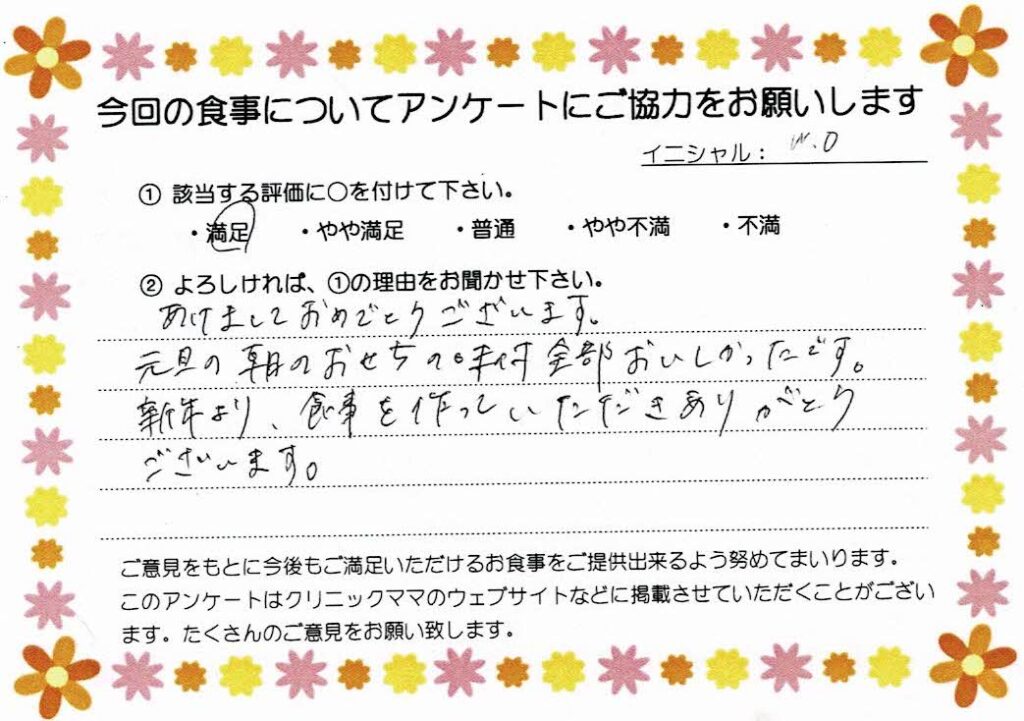 今回の食事についてアンケートにご協力をお願いします
イニシャル： W.O
① 該当する評価に○を付けて下さい。
・満足 ・やや満足 ・普通 ・やや不満 ・不満
② よろしければ、①の理由をお聞かせ下さい。
あけましておめでとうございます。
元旦の朝のおせちの味付全部おいしかったです。
新年より、食事を作っていただきありがとう
ございます。
ご意見をもとに今後もご満足いただけるお食事をご提供出来るよう努めてまいります。
このアンケートはクリニックママのウェブサイトなどに掲載させていただくことがござい
ます。たくさんのご意見をお願い致します。